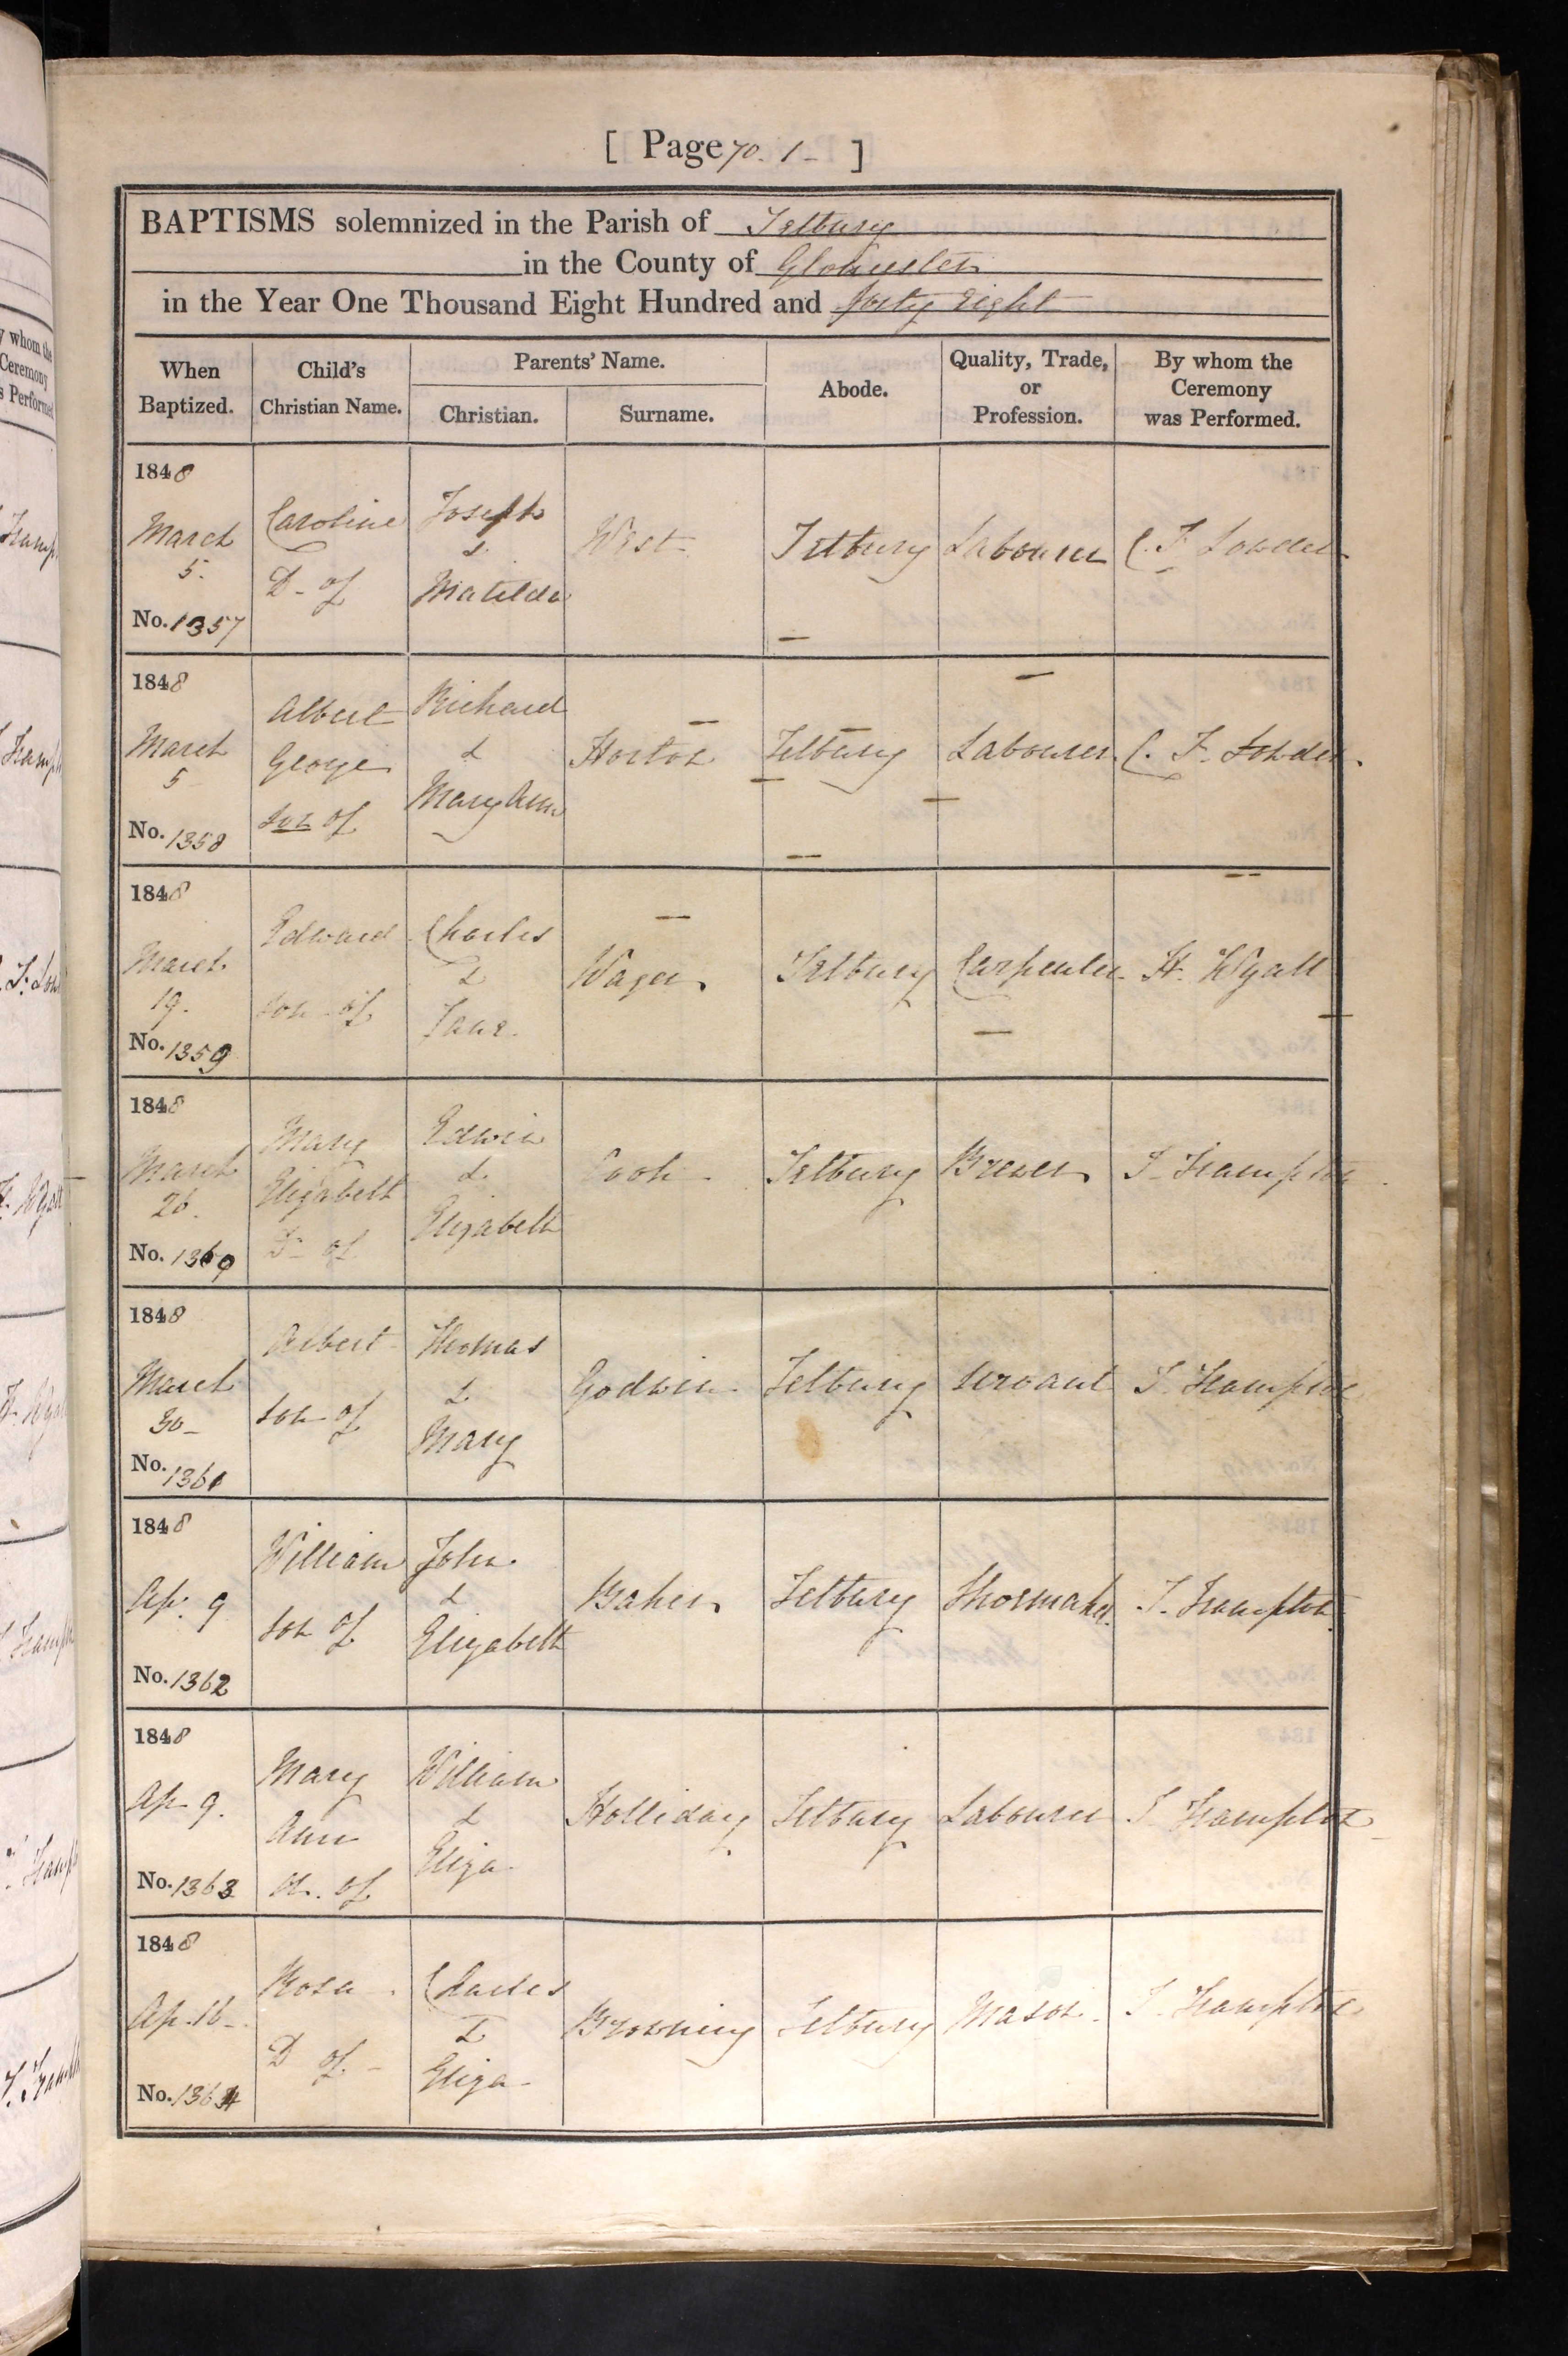 [ Page 70. 1 - ]
BAPTISMS solemnized in the Parish of Tetbury
in the County of Gloucester
in the Year One Thousand Eight Hundred and forty Eight
When Baptized. Child's Christian Name. Parents' Name. Christian. Surname. Abode. Quality, Trade, or Profession. By whom the Ceremony was Performed.
1848
March 5. Caroline D- of Joseph & Matilda West Tetbury Labourer C. F. Lowder
No. 1357
1848
March 5 Albert George Son of Richard & Mary Ann Horton Tetbury Labourer C. F. Lowder
No. 1358
1848
March 19. Edward Son of Charles & Jane Wager Tetbury Carpenter H. Wyatt
No. 1359
1848
March 26. Mary Elizabeth D- of Edwin & Elizabeth Cook Tetbury Brewer J. Frampton
No. 1360
1848
March 30 Albert Son of Thomas & Mary Godwin Tetbury Servant J. Frampton
No. 1361
1848
Ap. 9 William Son of John & Elizabeth Baker Tetbury Shoemaker J. Frampton
No. 1362
1848
Ap. 9. Mary Ann D. of William & Eliza Holliday Tetbury Labourer J. Frampton
No. 1363
1848
Ap. 16 Rosa D of Charles & Eliza Browning Tetbury Mason J. Frampton
No. 1364